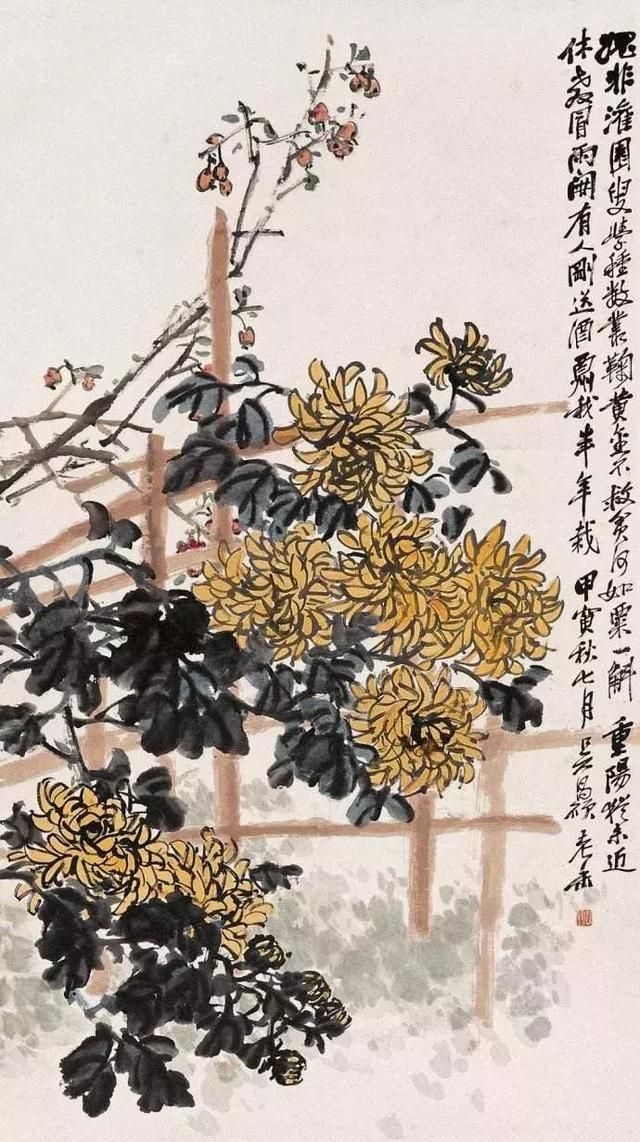 愧非灌園叟學種數叢鞠黃金不救貧何如粟一斛 重陽猶未近
休教冒雨開有人剛送酒勞我半年栽 甲寅秋七月 吳昌碩 老缶